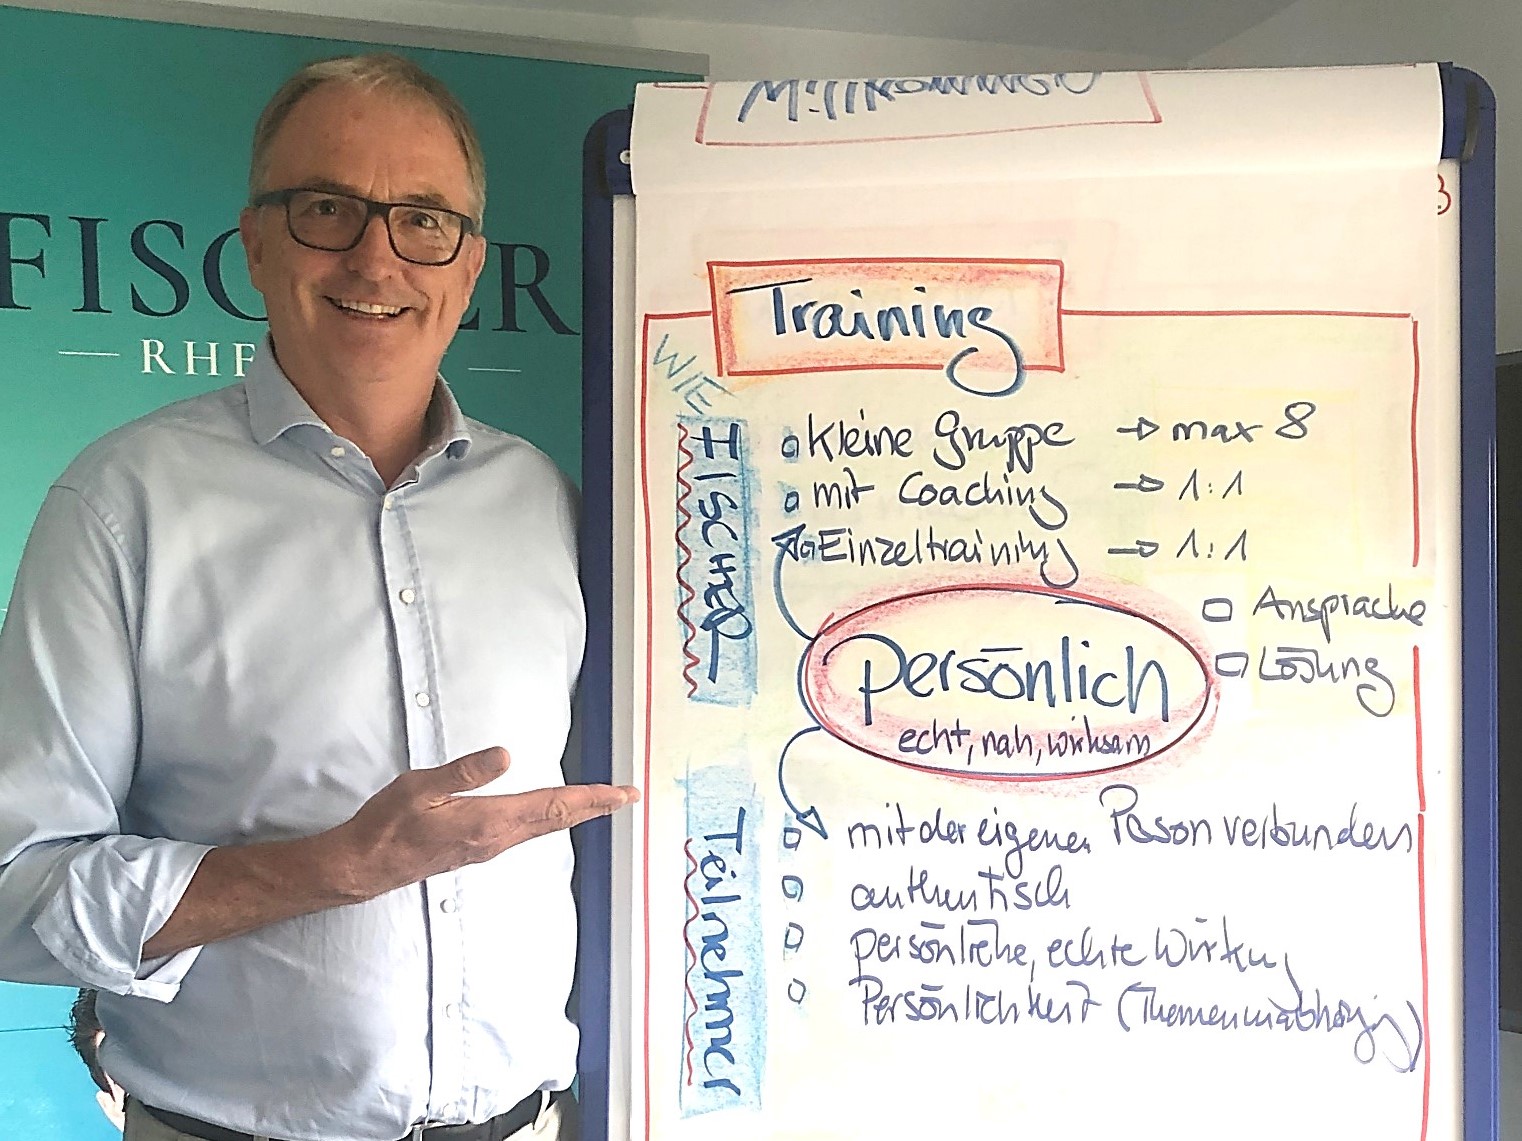 FISCHER
RHE
Willkommen
Training
WIE
FISCHER
Kleine Gruppe → max 8
mit Coaching → 1:1
Einzeltraining → 1:1
Ansprache
Lösung
persönlich
echt, nah, wirksam
Teilnehmer
mit der eigenen Person verbunden
authentisch
persönliche, echte Wirkung
Persönlichkeit (Themenunabhängig)